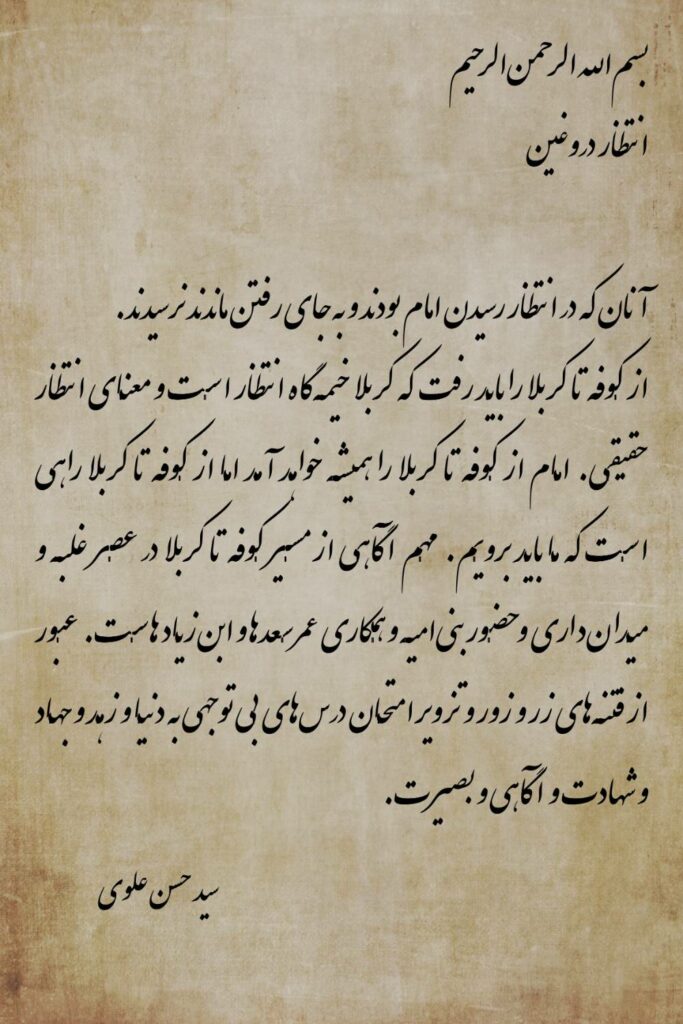 بسم الله الرحمن الرحیم
انتظار دروغین
آنان که در انتظار رسیدن امام بودند و به جای رفتن ماندند نرسیدند.
از کوفه تا کربلا را باید رفت که کربلا خیمه گاه انتظار است و معنای انتظار
حقیقی. امام از کوفه تا کربلا را همیشه خواهد آمد اما از کوفه تا کربلا راهی
است که ما باید برویم. مهم آگاهی از مسیر کوفه تا کربلا در عصر غلبه و
میدان داری و حضور بنی امیه و همکاری عمر سعدها و ابن زیادهاست. عبور
از فتنه های زر و زور و تزویر امتحان درس های بی توجهی به دنیا و زهد و جهاد
و شهادت و آگاهی و بصیرت.
سید حسن علوی